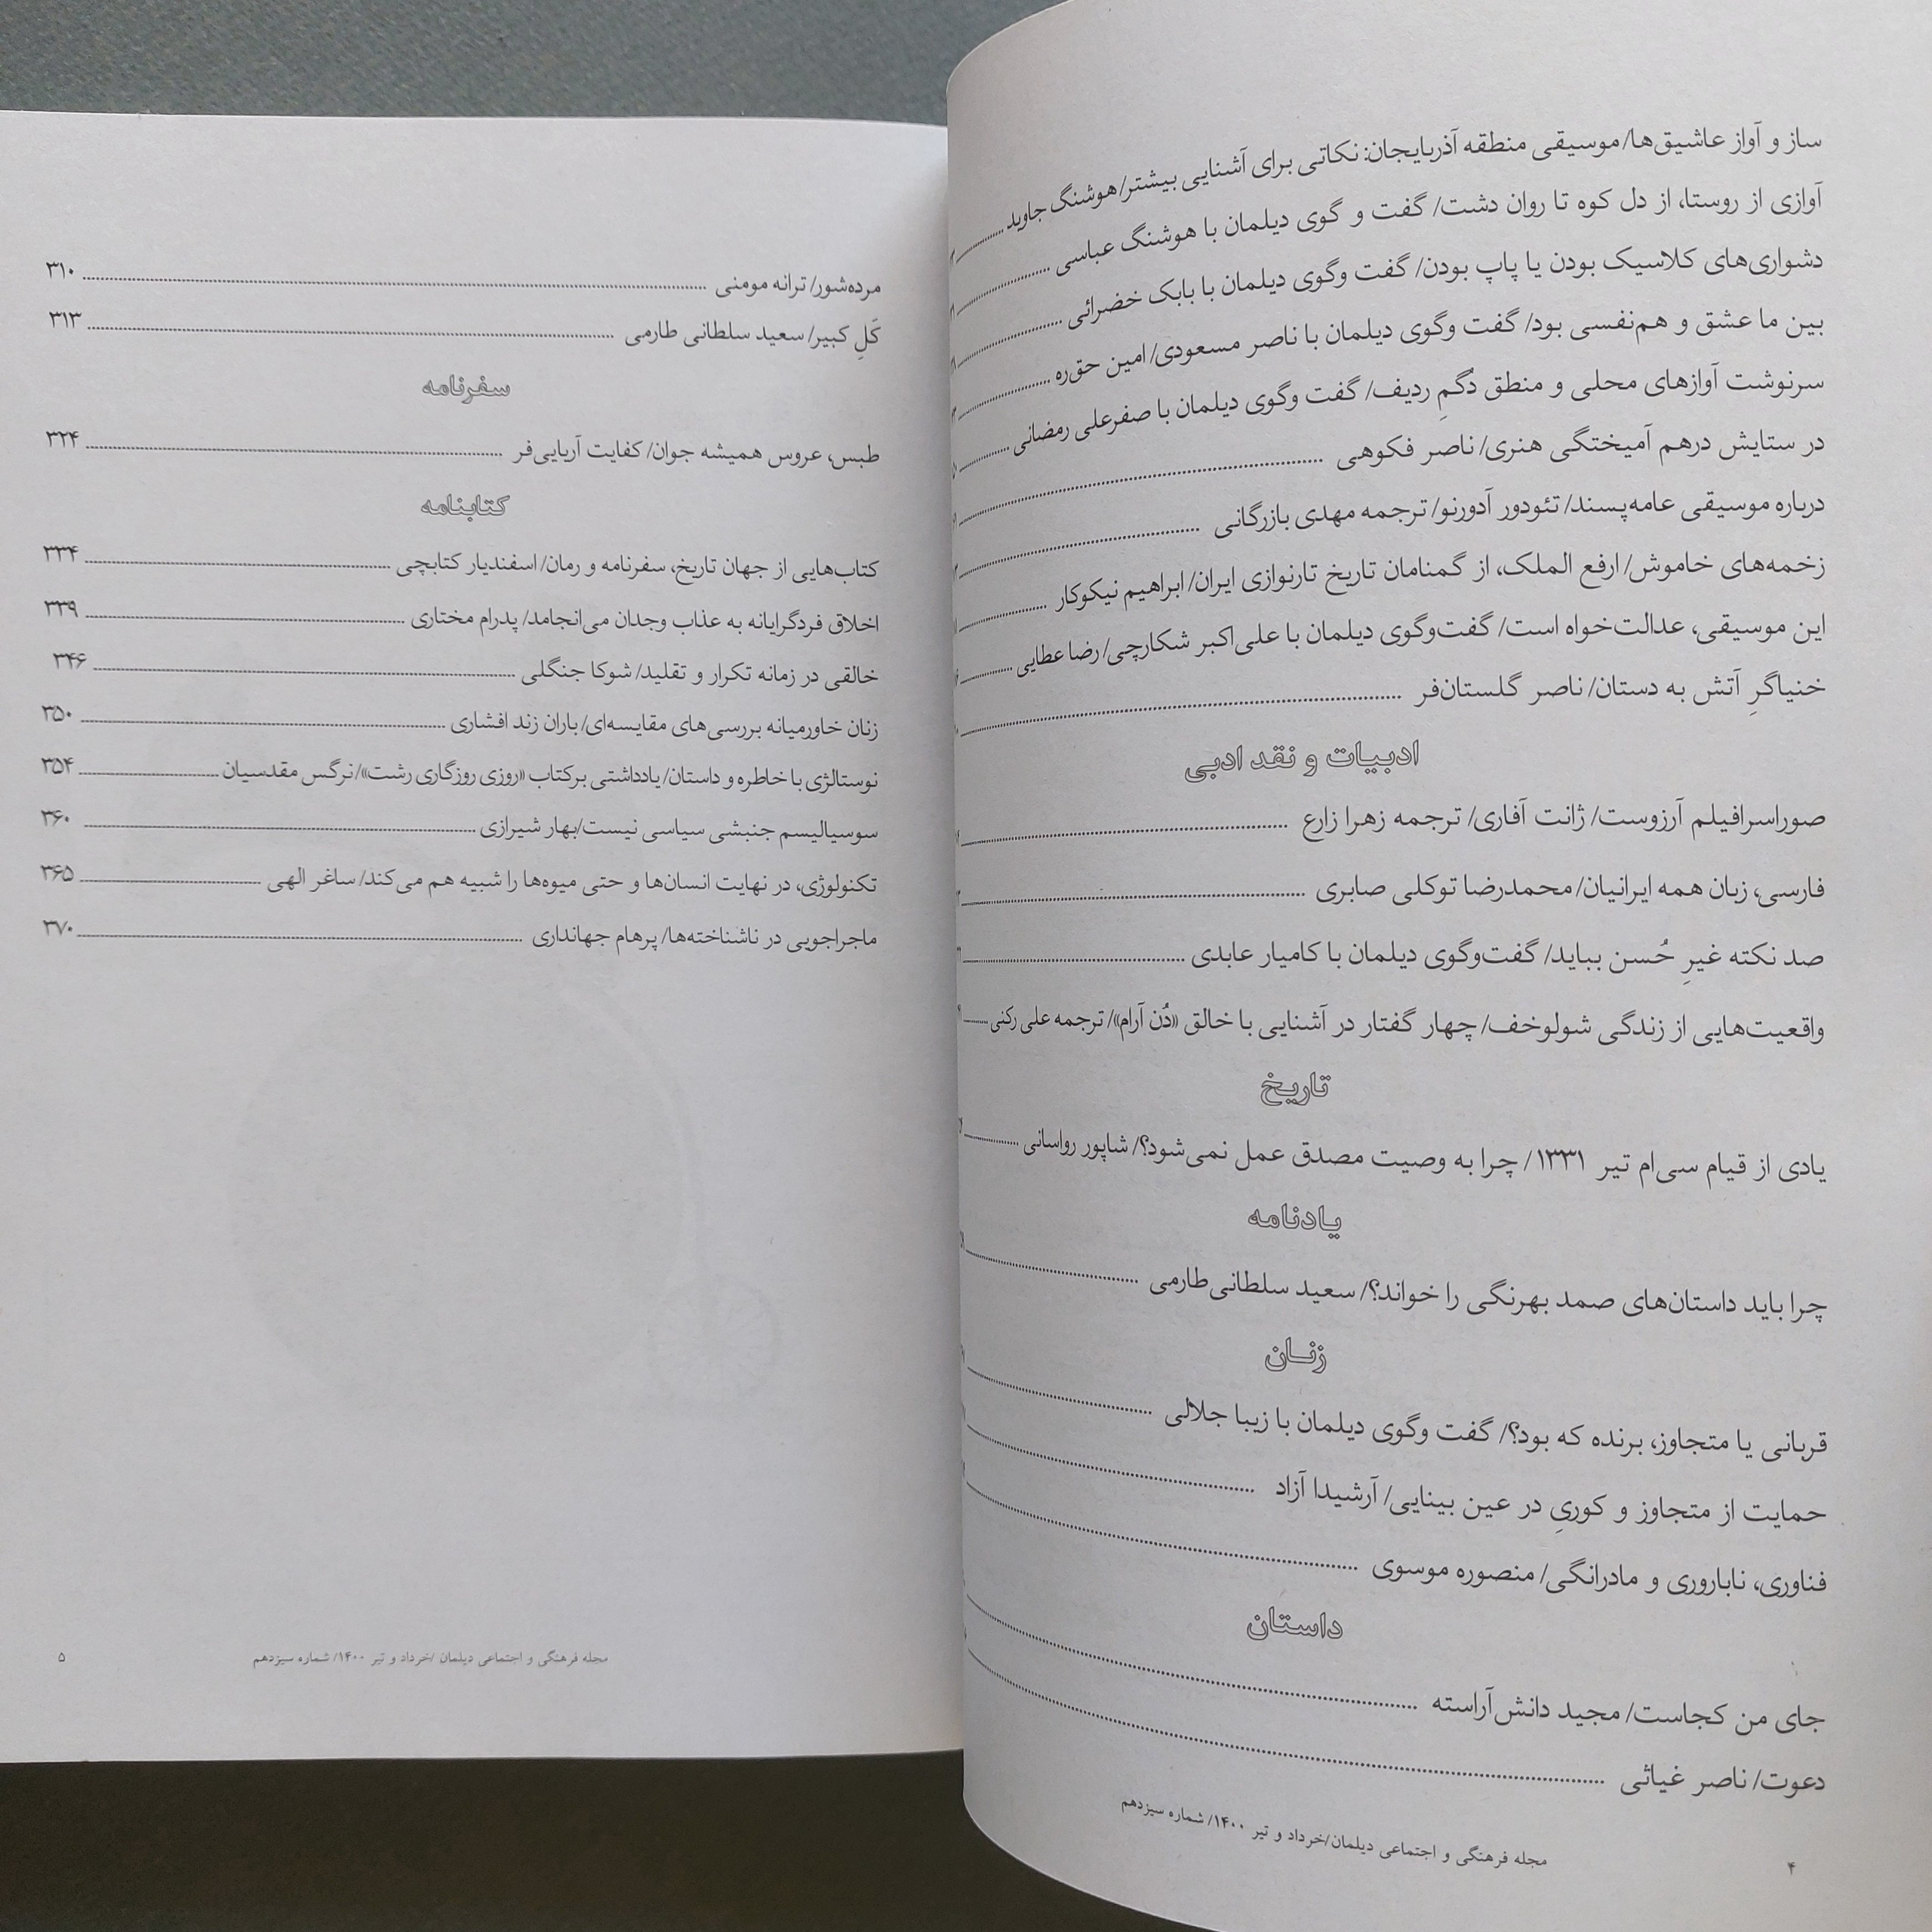 ساز و آواز عاشیق‌ها/ موسیقی منطقه آذربایجان: نکاتی برای آشنایی بیشتر/ هوشنگ جاوید
آوازی از روستا، از دل کوه تا روان دشت/ گفت و گوی دیلمان با هوشنگ عباسی
دشواری‌های کلاسیک بودن یا پاپ بودن/ گفت وگوی دیلمان با بابک خضرائی
بین ما عشق و هم‌نفسی بود/ گفت وگوی دیلمان با ناصر مسعودی/ امین حق‌ره
سرنوشت آوازهای محلی و منطق دُگمِ ردیف/ گفت وگوی دیلمان با صفرعلی رمضانی
در ستایش درهم آمیختگی هنری/ ناصر فکوهی
درباره موسیقی عامه‌پسند/ تئودور آدورنو/ ترجمه مهدی بازرگانی
زخمه‌های خاموش/ ارفع الملک، از گمنامان تاریخ تارنوازی ایران/ ابراهیم نیکوکار
این موسیقی، عدالت‌خواه است/ گفت‌وگوی دیلمان با علی‌اکبر شکارچی/ رضا عطایی
خنیاگرِ آتش به دستان/ ناصر گلستان‌فر
ادبیات و نقد ادبی
صوراسرافیلم آرزوست/ ژانت آفاری/ ترجمه زهرا زارع
فارسی، زبان همه ایرانیان/ محمدرضا توکلی صابری
صد نکته غیرِ حُسن بباید/ گفت‌وگوی دیلمان با کامیار عابدی
واقعیت‌هایی از زندگی شولوخف/ چهار گفتار در آشنایی با خالق «دُن آرام»/ ترجمه علی رکنی
تاریخ
یادی از قیام سی‌ام تیر ۱۳۳۱/ چرا به وصیت مصدق عمل نمی‌شود؟/ شاپور رواسانی
یادنامه
چرا باید داستان‌های صمد بهرنگی را خواند؟/ سعید سلطانی‌طارمی
زنان
قربانی یا متجاوز، برنده که بود؟/ گفت وگوی دیلمان با زیبا جلالی
حمایت از متجاوز و کوریِ در عین بینایی/ آرشیدا آزاد
فناوری، ناباروری و مادرانگی/ منصوره موسوی
داستان
جای من کجاست/ مجید دانش‌آراسته
دعوت/ ناصر غیاثی
۴ مجله فرهنگی و اجتماعی دیلمان/خرداد و تیر ۱۴۰۰/ شماره سیزدهم
مرده‌شور/ ترانه مومنی ۳۱۰
کَلِ کبیر/ سعید سلطانی طارمی ۳۱۳
سفرنامه
طبس، عروس همیشه جوان/ کفایت آریایی‌فر ۳۲۴
کتابنامه
کتاب‌هایی از جهان تاریخ، سفرنامه و رمان/ اسفندیار کتابچی ۳۳۴
اخلاق فردگرایانه به عذاب وجدان می‌انجامد/ پدرام مختاری ۳۳۹
خالقی در زمانه تکرار و تقلید/ شوکا جنگلی ۳۴۶
زنان خاورمیانه بررسی‌های مقایسه‌ای/ باران زند افشاری ۳۵۰
نوستالژی با خاطره و داستان/ یادداشتی برکتاب «روزی روزگاری رشت»/ نرگس مقدسیان ۳۵۴
سوسیالیسم جنبشی سیاسی نیست/بهار شیرازی ۳۶۰
تکنولوژی، در نهایت انسان‌ها و حتی میوه‌ها را شبیه هم می‌کند/ ساغر الهی ۳۶۵
ماجراجویی در ناشناخته‌ها/ پرهام جهانداری ۳۷۰
مجله فرهنگی و اجتماعی دیلمان /خرداد و تیر ۱۴۰۰/ شماره سیزدهم ۵